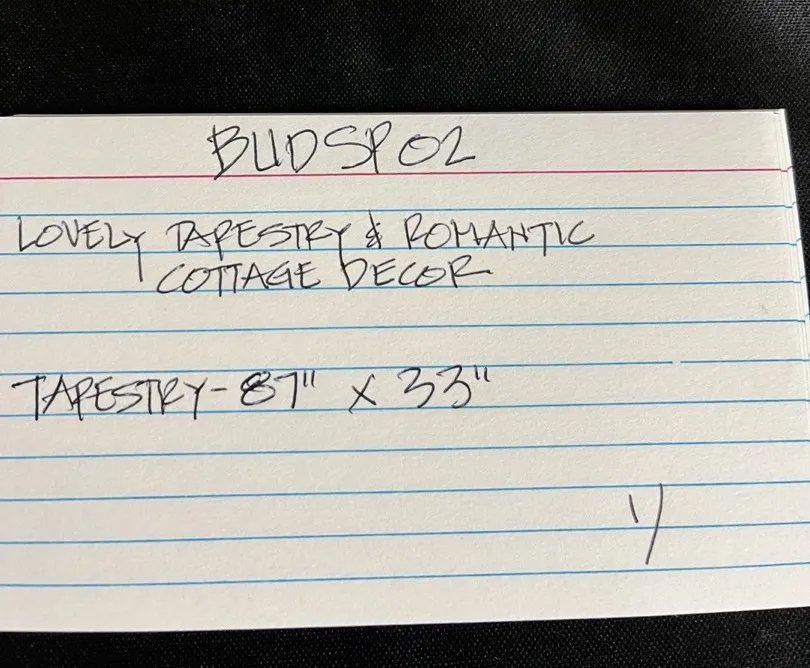 BUDSP02
LOVELY TAPESTRY & ROMANTIC
COTTAGE DECOR
TAPESTRY - 87" X 33"